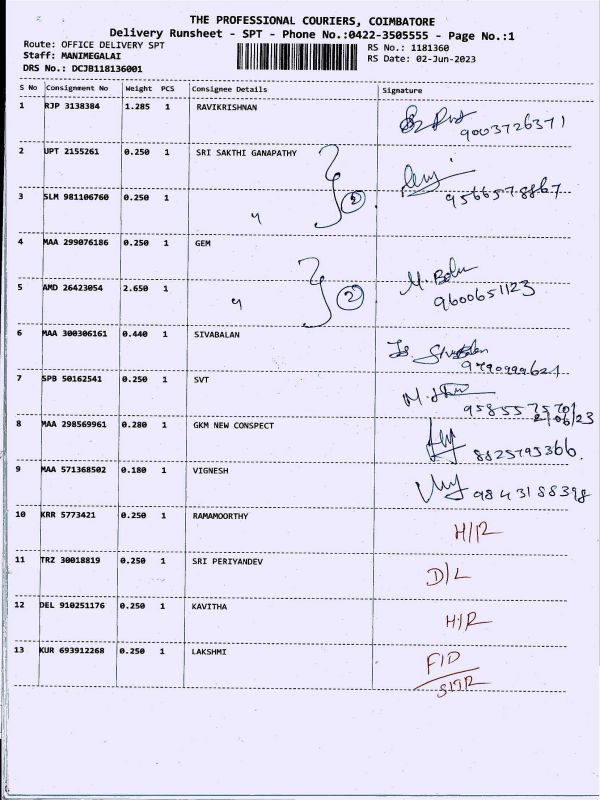 THE PROFESSIONAL COURIERS, COIMBATORE
Delivery Runsheet - SPT - Phone No.:0422-3505555 - Page No.:1
Route: OFFICE DELIVERY SPT
Staff: MANIMEGALAI
DRS No.: DCJB118136001
RS No.: 1181360
RS Date: 02-Jun-2023
S No Consignment No Weight PCS Consignee Details Signature
1 RJP 3138384 1.285 1 RAVIKRISHNAN
9003726371
2 UPT 2155261 0.250 1 SRI SAKTHI GANAPATHY
9566578867
3 SLM 981106760 0.250 1 " 2
4 MAA 299076186 0.250 1 GEM
M. Balu
5 AMD 26423054 2.650 1 " 2 9600651123
6 MAA 300306161 0.440 1 SIVABALAN
7 SPB 50162541 0.250 1 SVT
2/06/23
8 MAA 298569961 0.280 1 GKM NEW CONSPECT
8825793366.
9 MAA 571368502 0.180 1 VIGNESH
9843188398
10 KRR 5773421 0.250 1 RAMAMOORTHY H/R
11 TRZ 30018819 0.250 1 SRI PERIYANDEV D/L
12 DEL 910251176 0.250 1 KAVITHA H/R
13 KUR 693912268 0.250 1 LAKSHMI F/D